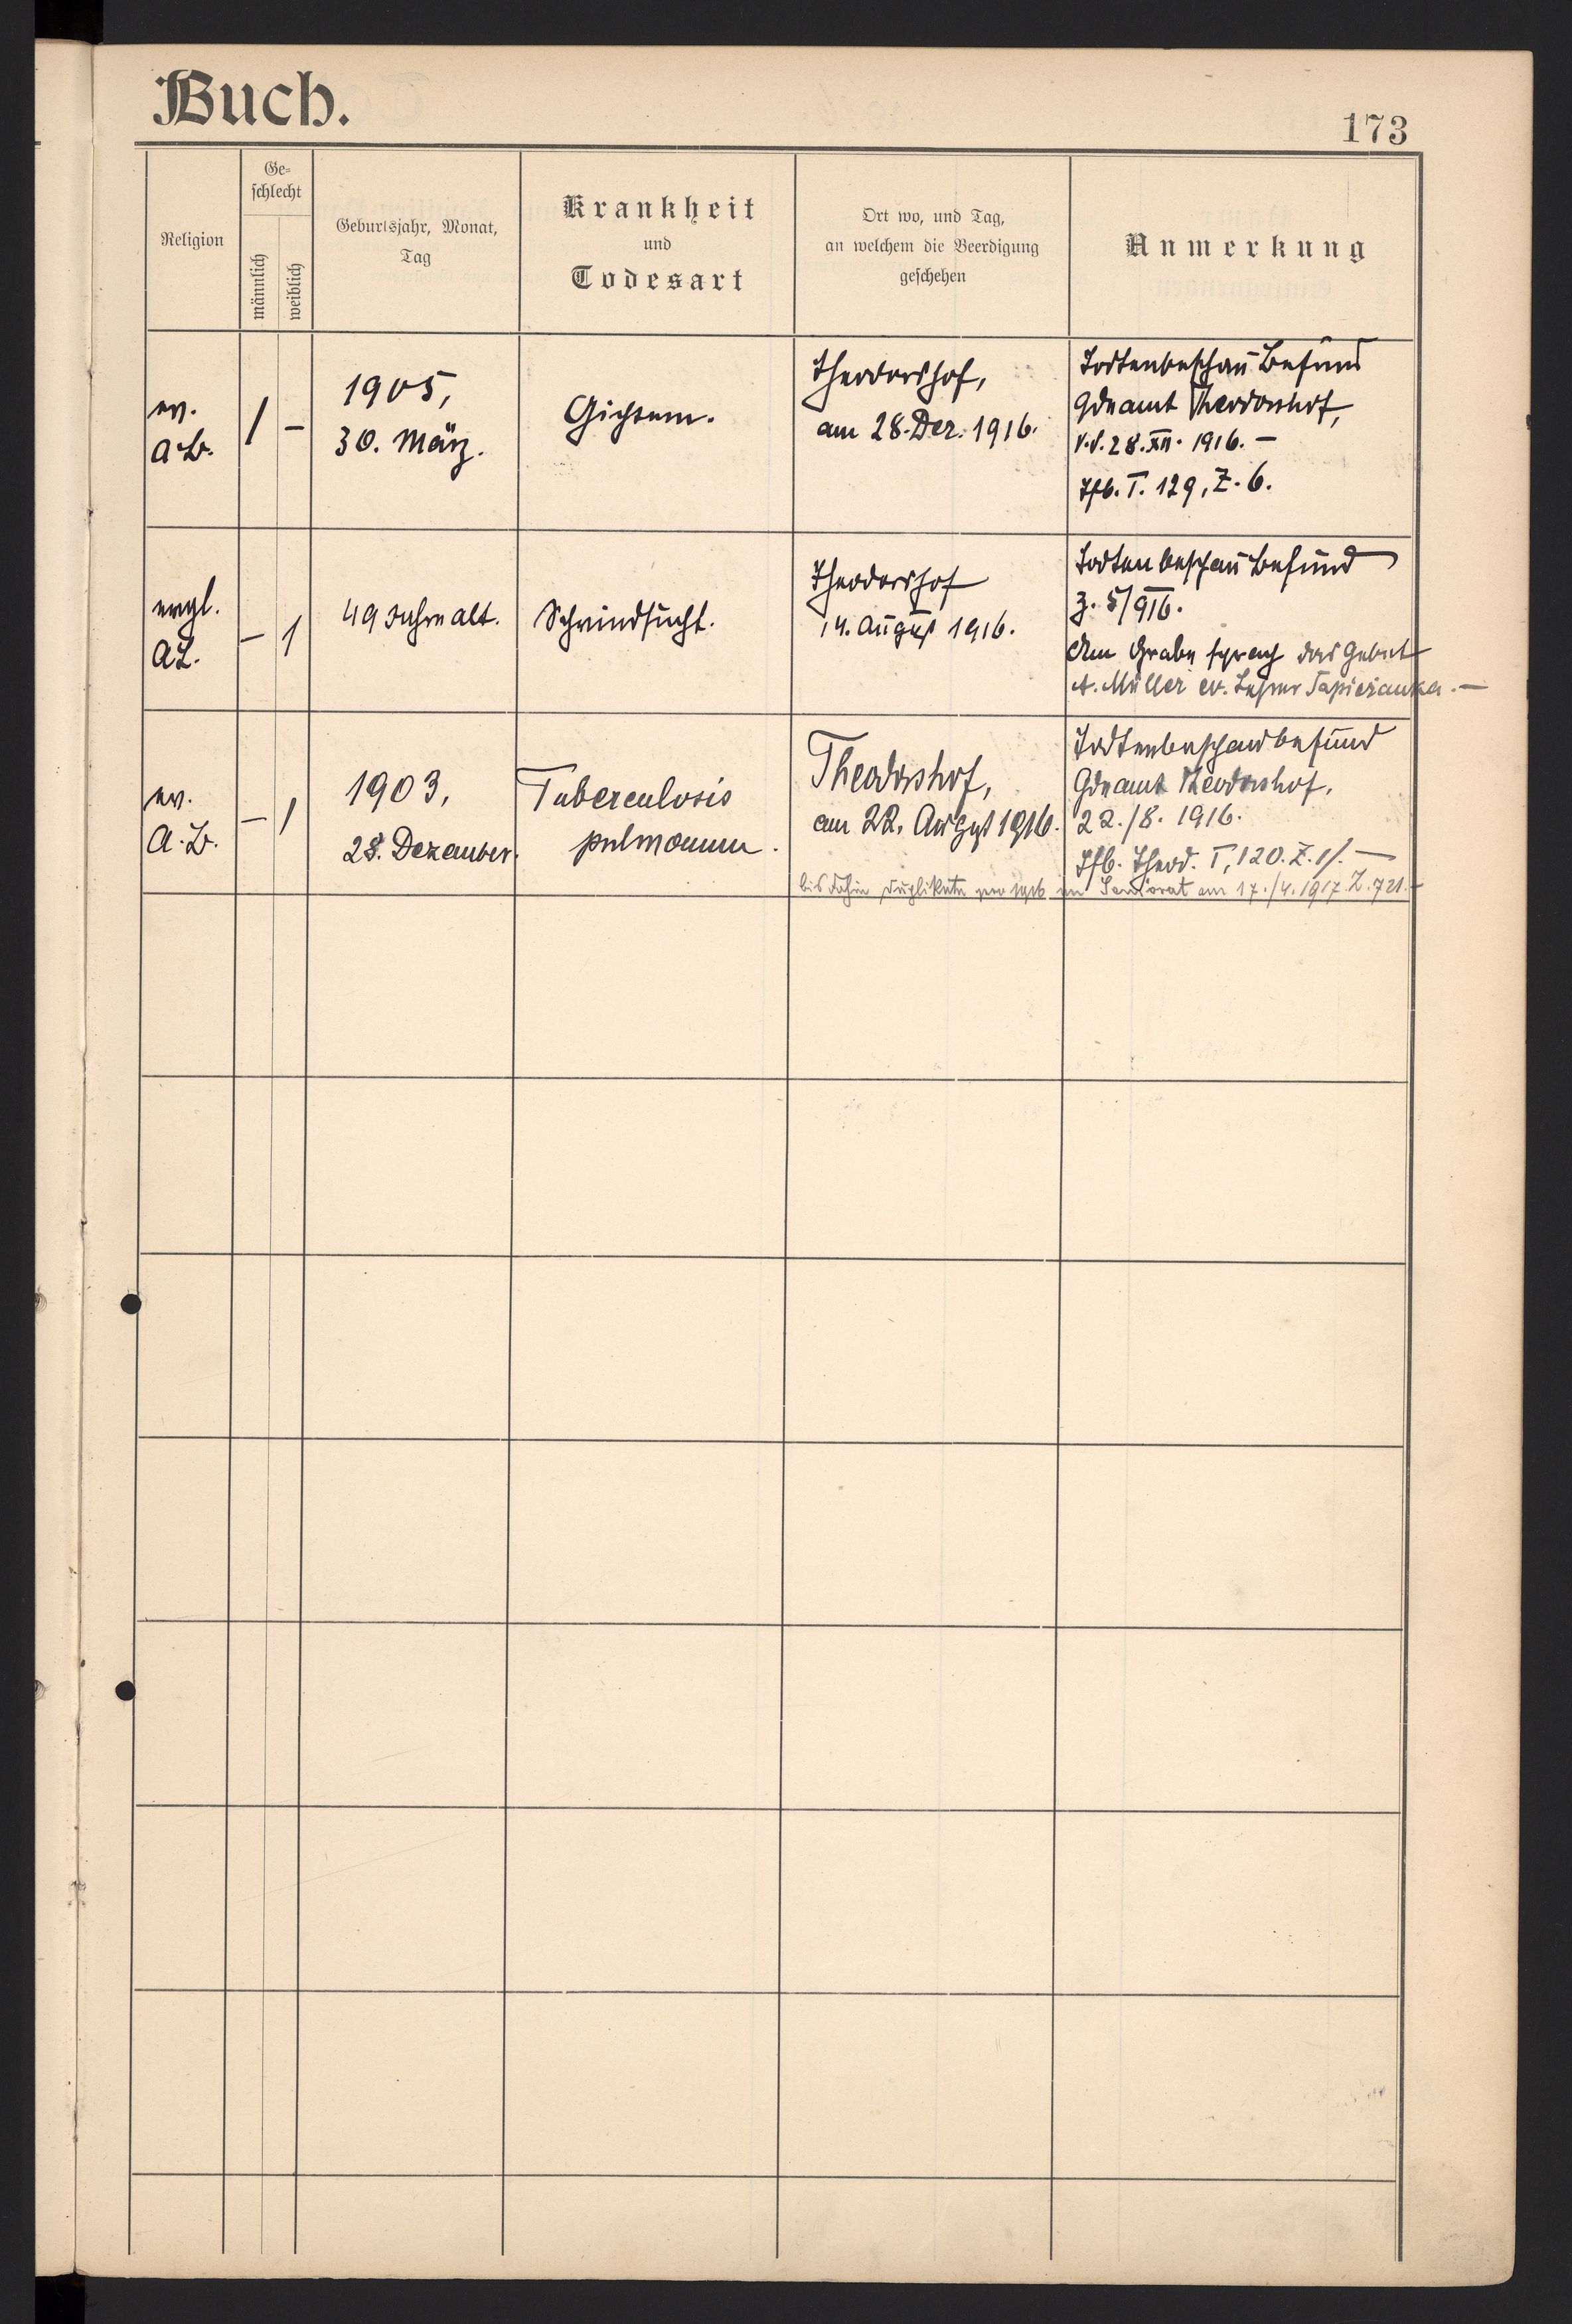 Buch.
173
Religion
Ge-
schlecht
männlich
weiblich
Geburtsjahr, Monat,
Tag
Krankheit
und
Todesart
Ort wo, und Tag,
an welchem die Beerdigung
geschehen
Anmerkung
ev.
A.B.
1 –
1905,
30. März.
Theodorshof,
am 28. Dez. 1916.
Todtenbeschau Befund
Gdeamt Theodorshof,
28. XII. 1916. –
T. 129, Z. 6.
evgl.
AB.
– 1
49 Jahre alt.
Schwindsucht.
Theodorshof
14. August 1916.
Todtenbeschau Befund
Z. 5/916.
Am Grabe sprach das Gebet
A. Müller ev. Lehrer Sapieżanka. –
ev.
A.B.
– 1
1903,
28. Dezember.
Tuberculosis
pulmonum.
Theodorshof,
am 22. August 1916.
Todtenbeschaubefund
Gdeamt Theodorshof,
22./8. 1916.
Theod. T, 120. Z.
bis dahin Duplikate pro 1916 im Seniorat am 17./4. 1917. Z. 721. –